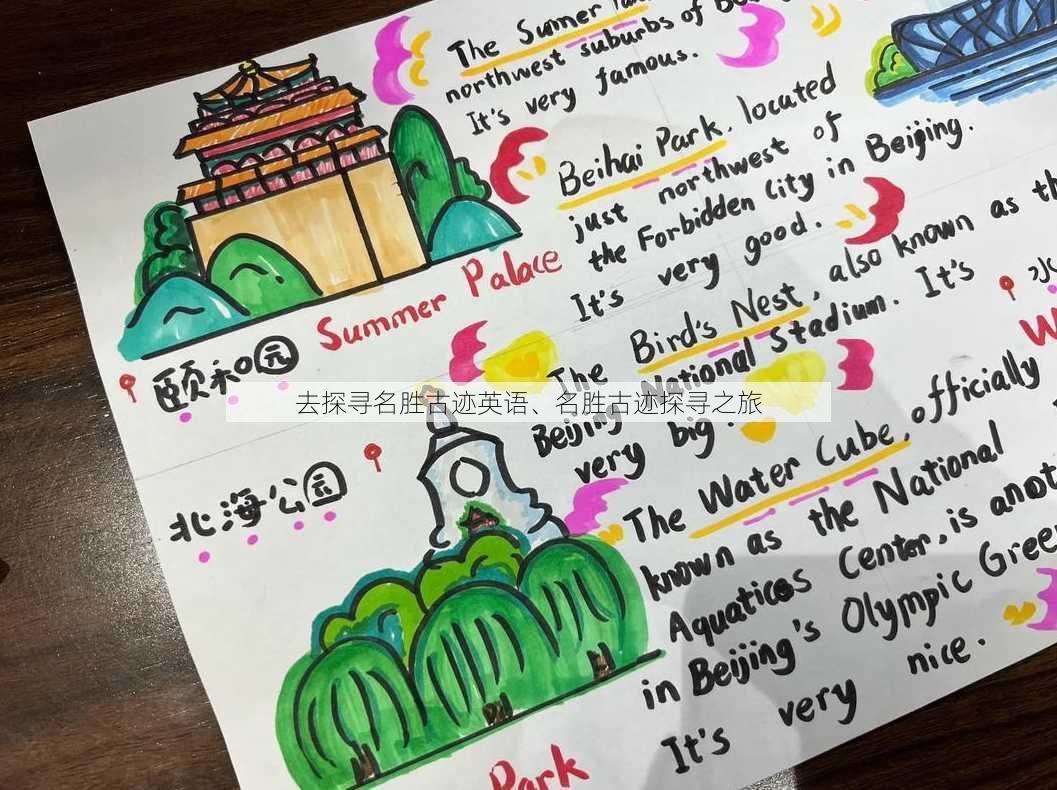 The Summer
northwest suburbs of
It's very famous.
Beihai Park, located
just northwest of
the Forbidden City in Beijing.
It's very good.
Summer Palace
颐和园
The Bird's Nest, also known as the
Beijing National Stadium. It's
very big.
去探寻名胜古迹英语、名胜古迹探寻之旅
北海公园
The Water Cube, officially
known as the National
Aquaticas Center, is
in Beijing's Olympic Green
It's very nice.
Park
水